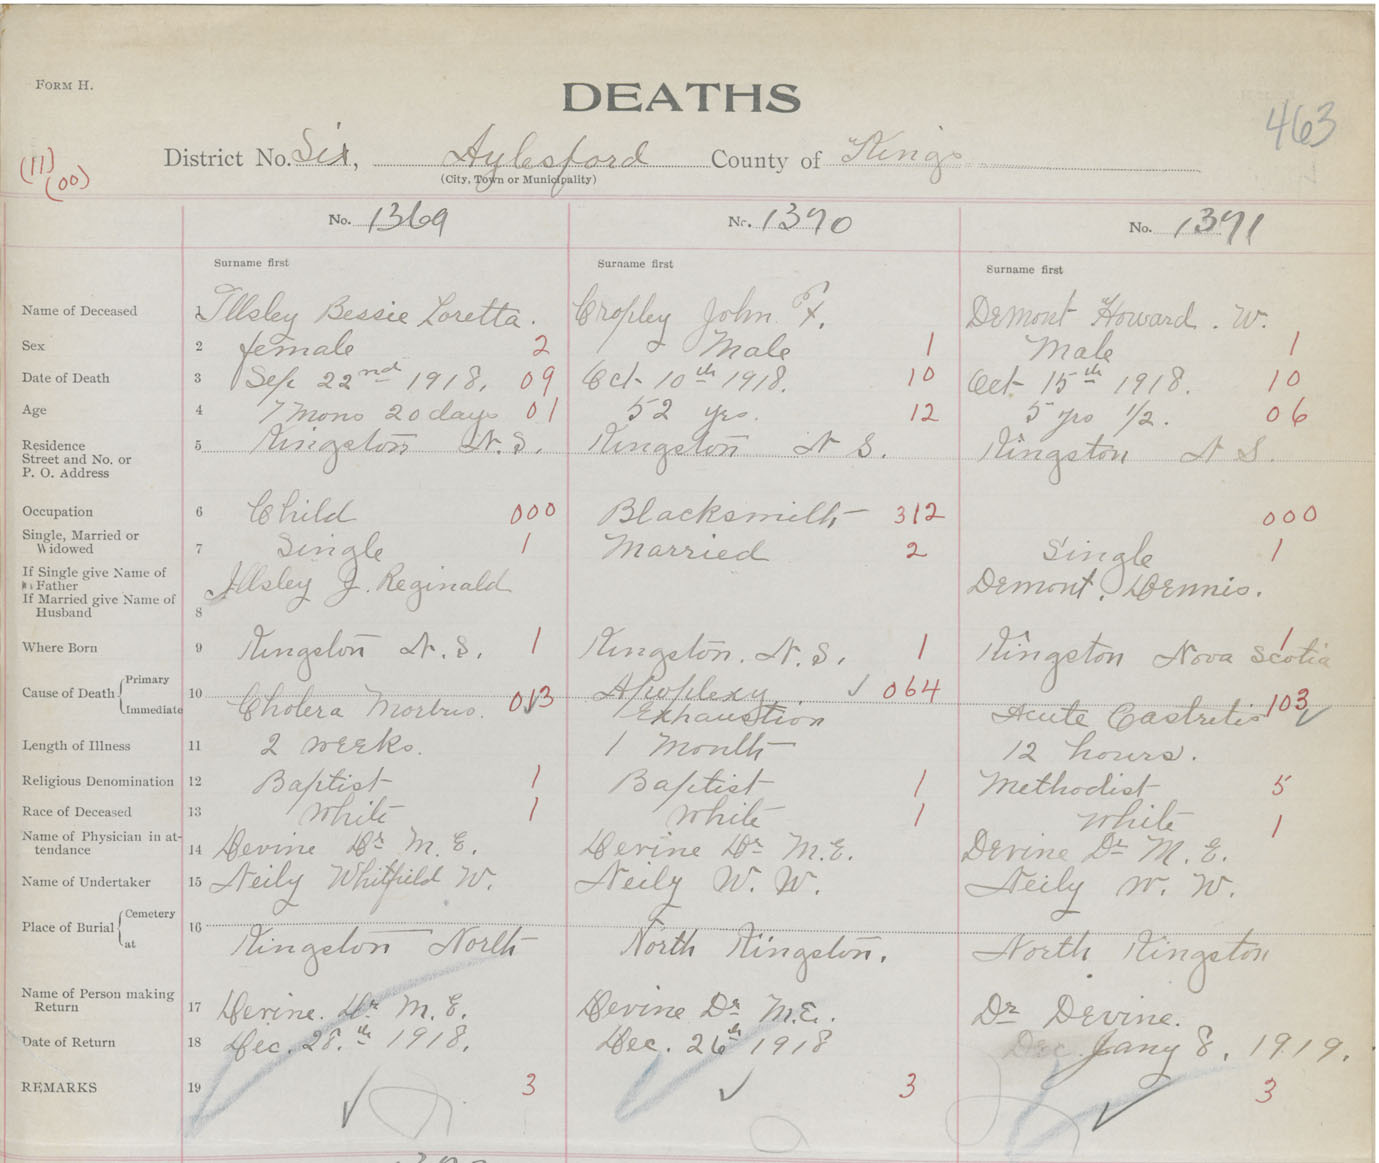 FORM H.
DEATHS
463
(11)
(00)
District No. Six, Aylesford County of Kings
(City, Town or Municipality)
No. 1369 No. 1370 No. 1371
Surname first Surname first Surname first
Name of Deceased 1 Illsley Bessie Loretta. Cropley John F. Demont Howard. W.
Sex 2 female 2 Male 1 Male 1
Date of Death 3 Sep 22nd 1918. 09 Oct 10th 1918. 10 Oct 15th 1918. 10
Age 4 7 Mons 20 days 01 52 yrs. 12 5 yrs 1/2. 06
Residence
Street and No. or
P. O. Address 5 Kingston N.S. Kingston N S. Kingston N S.
Occupation 6 Child 000 Blacksmith 312 000
Single, Married or
Widowed 7 Single 1 Married 2 Single 1
If Single give Name of
Father
If Married give Name of
Husband 8 Illsley J. Reginald Demont. Dennis.
Where Born 9 Kingston N.S. 1 Kingston. N.S. 1 Kingston Nova Scotia 1
Cause of Death Primary 10 Apoplexy ✓ 064
Immediate Cholera Morbus. 013 Exhaustion Acute Gastritis 103 ✓
Length of Illness 11 2 weeks. 1 Month 12 hours.
Religious Denomination 12 Baptist 1 Baptist 1 Methodist 5
Race of Deceased 13 White 1 White 1 White 1
Name of Physician in at-
tendance 14 Devine Dr M.E. Devine Dr M.E. Devine Dr M.E.
Name of Undertaker 15 Neily Whitfield W. Neily W. W. Neily W. W.
Place of Burial Cemetery 16
at Kingston North North Kingston. North Kingston
Name of Person making
Return 17 Devine. Dr M.E. Devine Dr M.E. Dr Devine.
Date of Return 18 Dec. 28.th 1918. Dec. 26th 1918 Dec. Jany 8, 1919.
REMARKS 19 ✓ 3 ✓ 3 ✓ 3